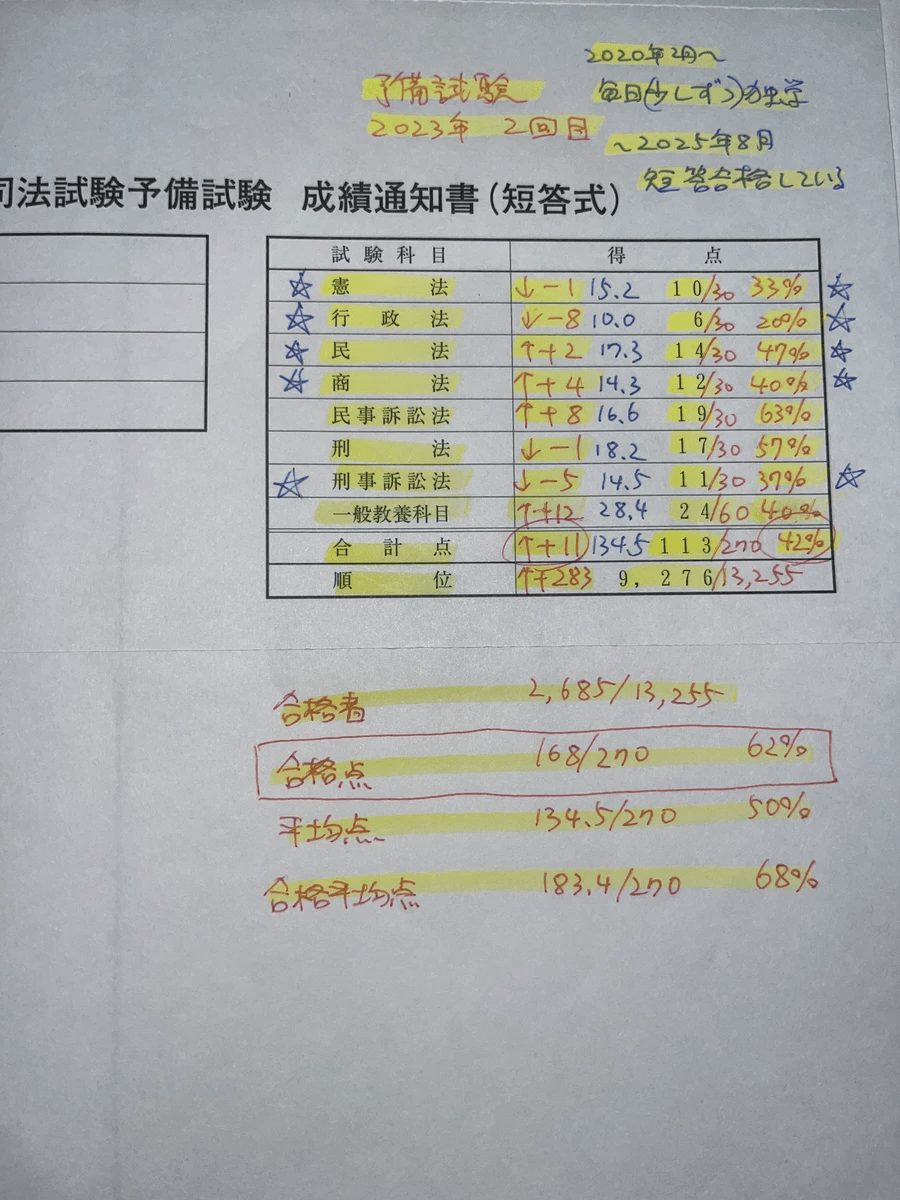 予備試験
2023年 2回目
2020年2月～
毎日(少しずつ)勉学
～2025年8月
短答合格している
司法試験予備試験 成績通知書(短答式)
試験科目 得点
☆ 憲法 ↓-1 15.2 10/30 33% ☆
☆ 行政法 ↓-8 10.0 6/30 20% ☆
☆ 民法 ↑+2 17.3 14/30 47% ☆
☆ 商法 ↑+4 14.3 12/30 40% ☆
民事訴訟法 ↑+8 16.6 19/30 63%
刑法 ↓-1 18.2 17/30 57%
☆ 刑事訴訟法 ↓-5 14.5 11/30 37% ☆
一般教養科目 ↑+12 28.4 24/60 40%
合計点 ↑+11 134.5 113/270 42%
順位 ↑+283 9,276/13,255
合格者 2,685/13,255
合格点 168/270 62%
平均点 134.5/270 50%
合格平均点 183.4/270 68%